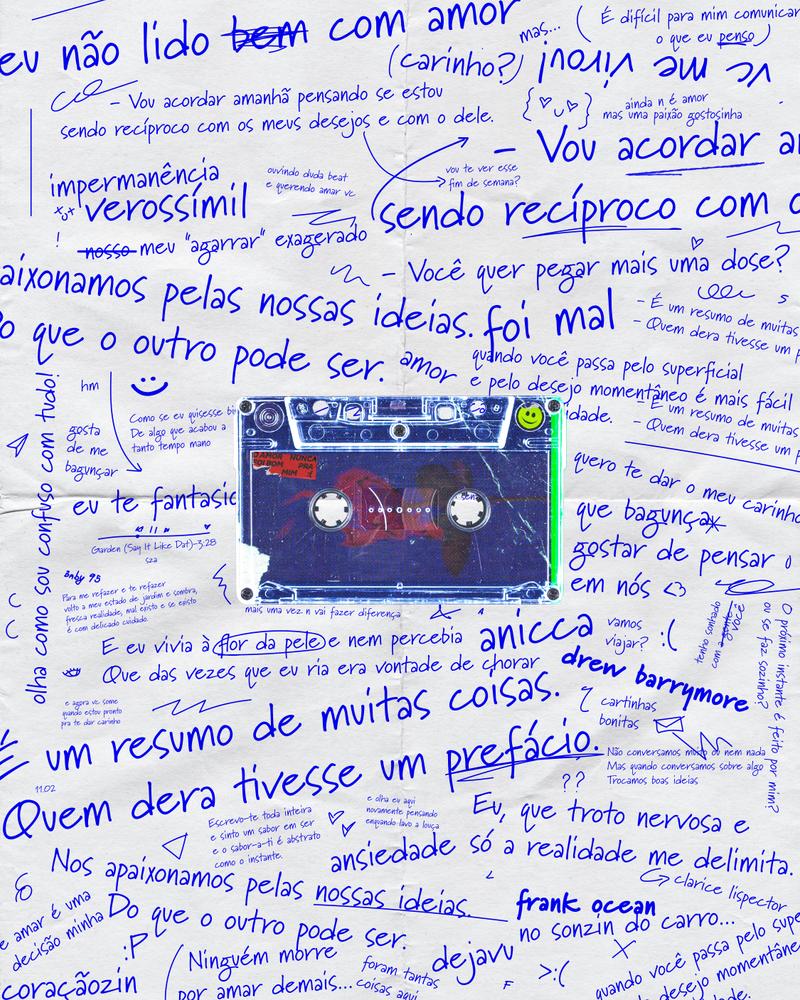 eu não lido bem com amor
(carinho?)
mas...
( É difícil para mim comunicar
o que eu penso )
vc me virou!
– Vou acordar amanhã pensando se estou
sendo recíproco com os meus desejos e com o dele.
ainda n é amor
mas uma paixão gostosinha
– Vou acordar
sendo recíproco com
vou te ver esse
fim de semana?
impermanência
verossímil
ouvindo duda beat
e querendo amar vc
! nosso meu "agarrar" exagerado
– Você quer pegar mais uma dose?
aixonamos pelas nossas ideias.
Do que o outro pode ser.
foi mal
- É um resumo de muitas
- Quem dera tivesse um
amor
quando você passa pelo superficial
e pelo desejo momentâneo é mais fácil
idade.
- É um resumo de muitas
- Quem dera tivesse um
olha como sou confuso com tudo!
hm
gosta
de me
bagunçar
Como se eu quisesse
De algo que acabou a
tanto tempo mano
eu te fantasi
Garden (Say It Like Dat)–3:28
sza
O AMOR NUNCA
FOI BOM PRA
MIM :(
quero te dar o meu carinho
que bagunça
gostar de pensar
em nós <3
Para me refazer e te refazer
volto a meu estado de jardim e sombra,
fresca realidade, mal existo e se existo
é com delicado cuidado.
mais uma vez n vai fazer diferença
E eu vivia à flor da pele e nem percebia
Que das vezes que eu ria era vontade de chorar
anicca
vamos
viajar? :(
tenho sonhado
com a gente você
O próximo instante é feito por mim?
ou se faz sozinho?
drew barrymore
cartinhas
bonitas
e agora vc some
quando estou pronto
pra te dar carinho
É um resumo de muitas coisas.
Quem dera tivesse um prefácio.
Não conversamos muito ou nem nada
Mas quando conversamos sobre algo
Trocamos boas ideias
??
11.02
Escrevo-te toda inteira
e sinto um sabor em ser
e o sabor-a-ti é abstrato
como o instante.
e olha eu aqui
novamente pensando
enquando lavo a louça
Eu, que troto nervosa e
ansiedade só a realidade me delimita.
clarice lispector
Nos apaixonamos pelas nossas ideias.
Do que o outro pode ser.
e amar é uma
decisão minha
:P
coraçãozin
Ninguém morre
por amar demais...
foram tantas
coisas aqui
dejavu
frank ocean
no sonzin do carro...
>:(
quando você passa pelo supe
desejo momentâne